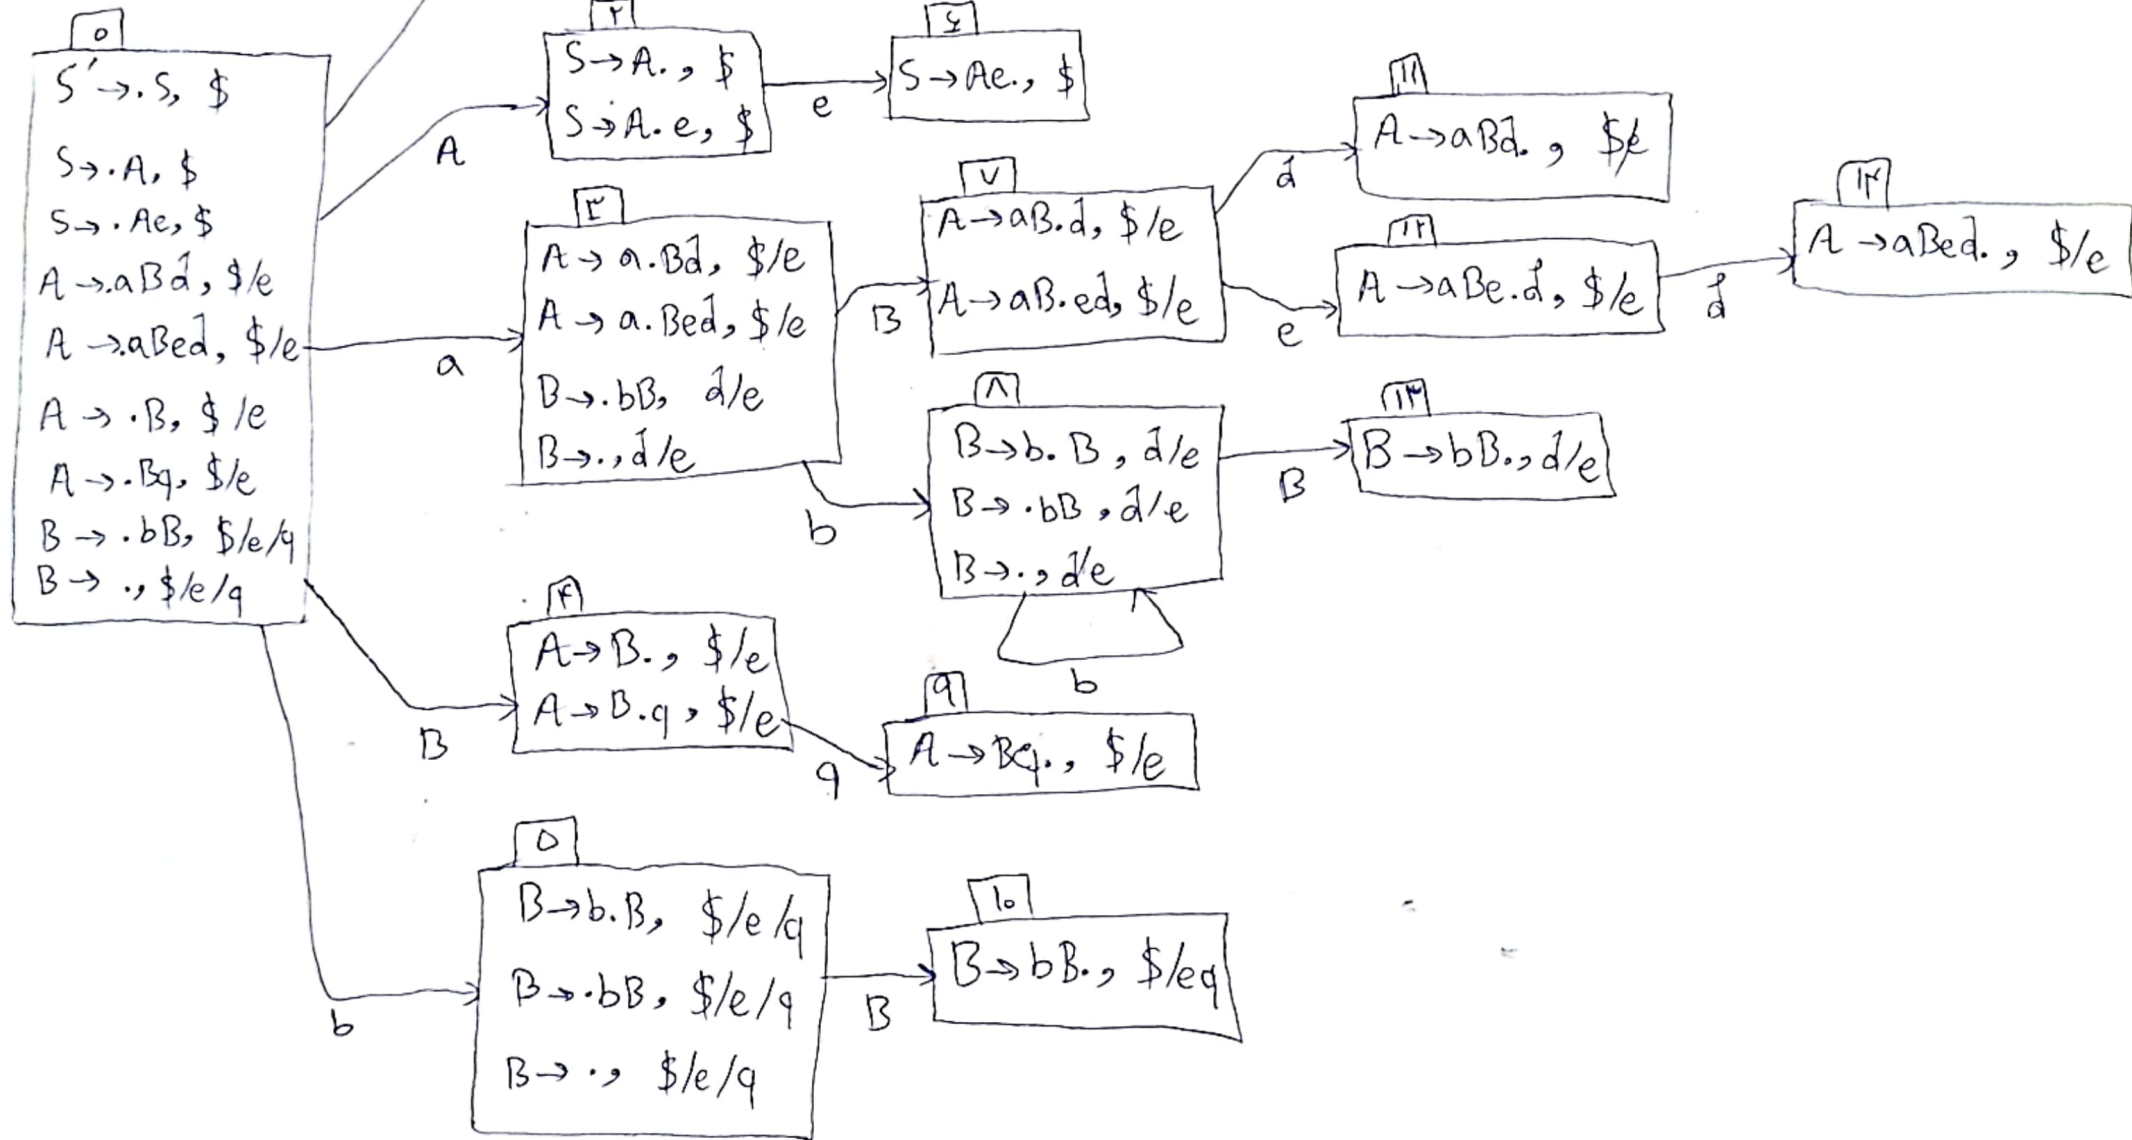 ۰
S' →.S, $
S→.A, $
S→.Ae, $
A →.aBd, $/e
A →.aBed, $/e
A →.B, $/e
A →.Bq, $/e
B →.bB, $/e/q
B → ., $/e/q
A
a
B
b
۲
S→A., $
S→A.e, $
e
۶
S→Ae., $
۳
A→a.Bd, $/e
A→a.Bed, $/e
B→.bB, d/e
B→., d/e
B
b
۷
A→aB.d, $/e
A→aB.ed, $/e
d
e
۱۱
A→aBd., $/e
۱۲
A→aBe.d, $/e
d
A→aBed., $/e
۸
B→b.B, d/e
B→.bB, d/e
B→., d/e
b
B
۱۳
B→bB., d/e
۴
A→B., $/e
A→B.q, $/e
q
۹
A→Bq., $/e
۵
B→b.B, $/e/q
B→.bB, $/e/q
B→., $/e/q
B
۱۰
B→bB., $/eq